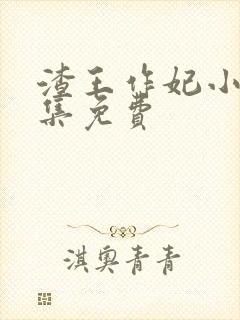 渣王作妃小
集免费
淇奥青青